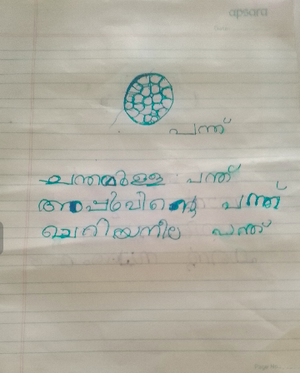 apsara
പന്ത്
ചന്തമുള്ള പന്ത്
അപ്പുവിന്റെ പന്ത്
ചെറിയനീല പന്ത്